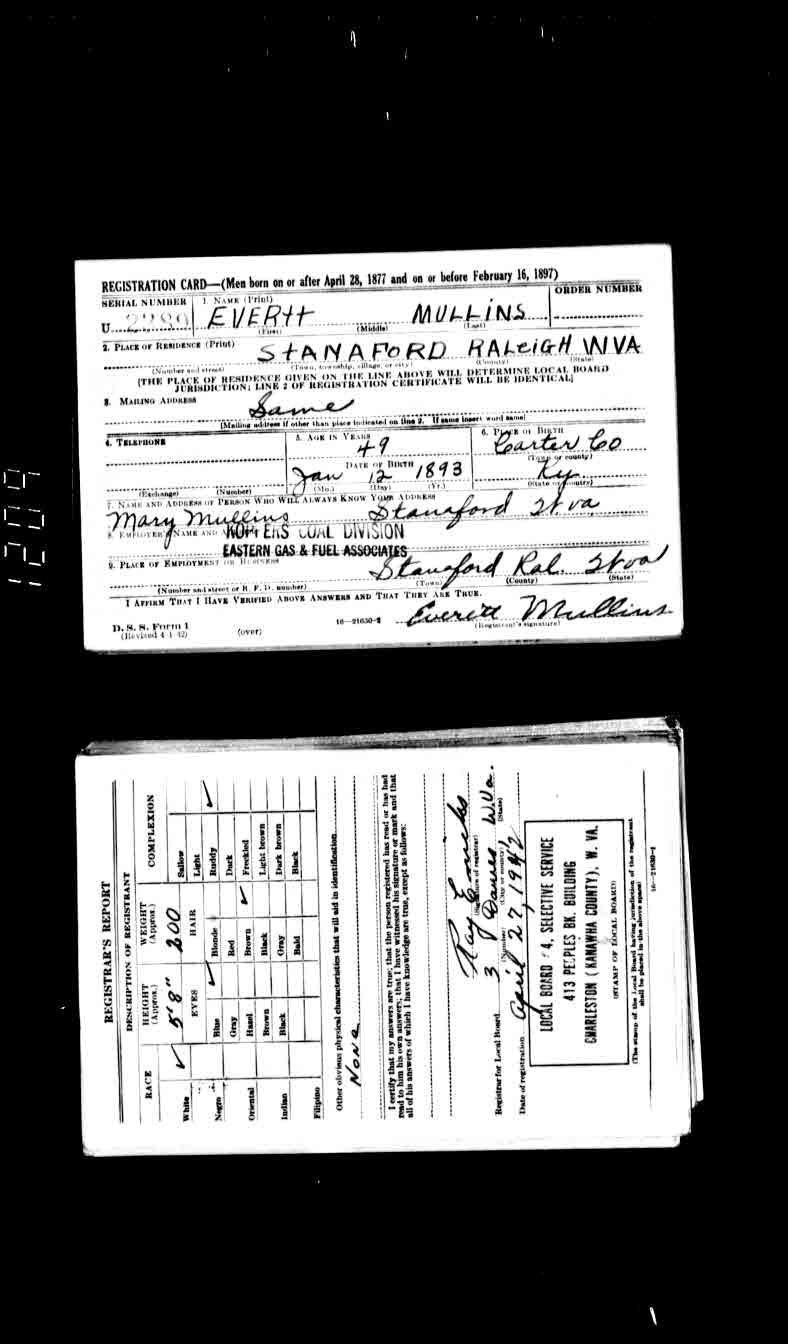 1209
REGISTRATION CARD—(Men born on or after April 28, 1877 and on or before February 16, 1897)
SERIAL NUMBER 1. NAME (Print) ORDER NUMBER
U 2289 EVERtt MULLiNS
(First) (Middle) (Last)
2. PLACE OF RESIDENCE (Print)
StANAFORD RALeiGH W VA
(Number and street) (Town, township, village, or city) (County) (State)
[THE PLACE OF RESIDENCE GIVEN ON THE LINE ABOVE WILL DETERMINE LOCAL BOARD
JURISDICTION; LINE 2 OF REGISTRATION CERTIFICATE WILL BE IDENTICAL]
3. MAILING ADDRESS
Same
[Mailing address if other than place indicated on line 2. If same insert word same]
4. TELEPHONE 5. AGE IN YEARS 6. PLACE OF BIRTH
49 Carter Co
DATE OF BIRTH (Town or county)
Jan 12 1893 Ky
(Exchange) (Number) (Mo.) (Day) (Yr.) (State or country)
7. NAME AND ADDRESS OF PERSON WHO WILL ALWAYS KNOW YOUR ADDRESS
Mary Mullins Stanaford W va
8. EMPLOYER'S NAME AND
KOPPERS COAL DIVISION
EASTERN GAS & FUEL ASSOCIATES
9. PLACE OF EMPLOYMENT OR BUSINESS
Stanaford Ral. W va
(Number and street or R. F. D. number) (Town) (County) (State)
I AFFIRM THAT I HAVE VERIFIED ABOVE ANSWERS AND THAT THEY ARE TRUE.
Everett Mullins
D. S. S. Form 1
(Revised 4-1-42) (over) 16—21630-2 (Registrant's signature)
REGISTRAR'S REPORT
DESCRIPTION OF REGISTRANT
RACE HEIGHT (Approx.) WEIGHT (Approx.) COMPLEXION
5' 8" 200
White ✓ EYES HAIR Sallow
Light
Negro Blue ✓ Blonde Ruddy ✓
Gray Red Dark
Oriental Hazel Brown ✓ Freckled
Brown Black Light brown
Indian Black Gray Dark brown
Filipino Bald Black
Other obvious physical characteristics that will aid in identification
NONe
I certify that my answers are true; that the person registered has read or has had
read to him his own answers; that I have witnessed his signature or mark and that
all of his answers of which I have knowledge are true, except as follows:
Ray
(Signature of registrar)
Registrar for Local Board 3 W.Va.
(Number) (City or county) (State)
Date of registration April 27, 1942
LOCAL BOARD #4, SELECTIVE SERVICE
413 PEOPLES BK. BUILDING
CHARLESTON (KANAWHA COUNTY), W. VA.
(STAMP OF LOCAL BOARD)
(The stamp of the Local Board having jurisdiction of the registrant
shall be placed in the above space)
16—21630-1